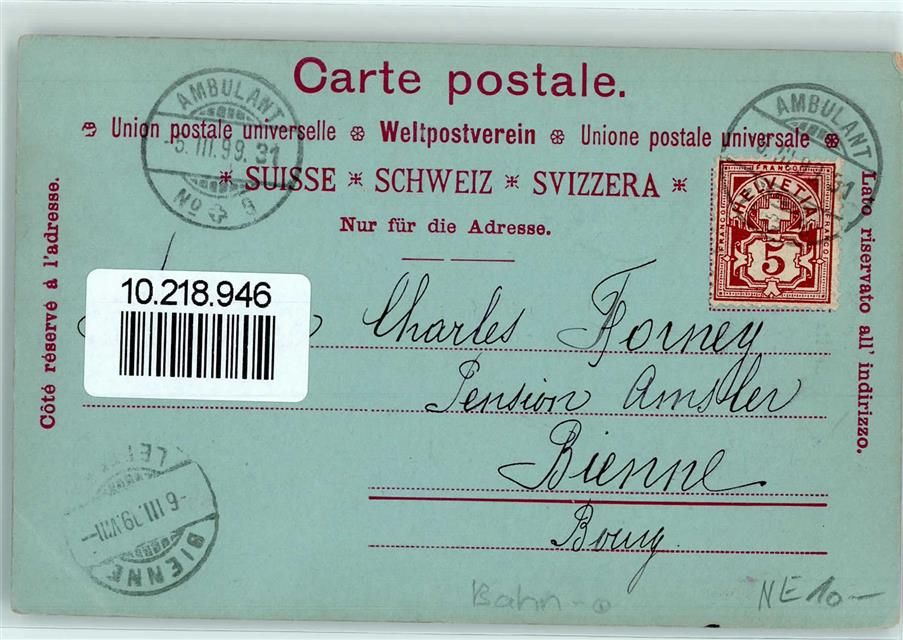 Carte postale.
Union postale universelle Weltpostverein Unione postale universale
SUISSE SCHWEIZ SVIZZERA
Nur für die Adresse.
Côté réservé à l'adresse.
Lato riservato all' indirizzo.
AMBULANT
-5.III.99.31
No 9
AMBULANT
31
FRANCO
HELVETIA
FRANCO
FRANCO
5
10.218.946
Charles Forney
Pension Amsler
Bienne
Boug.
LET
-6.III.99.VIII-
BIENNE
Bahn-
NE 10-